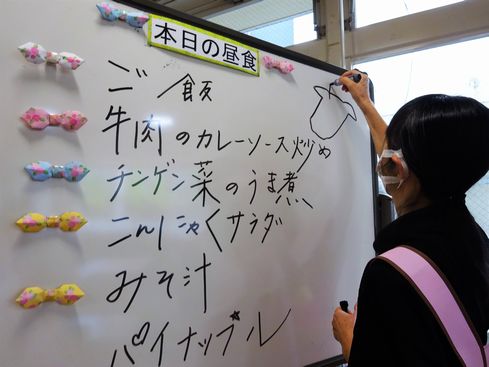 本日の昼食
ご飯
牛肉のカレーソース炒め
チンゲン菜のうま煮
こんにゃくサラダ
みそ汁
パイナップル